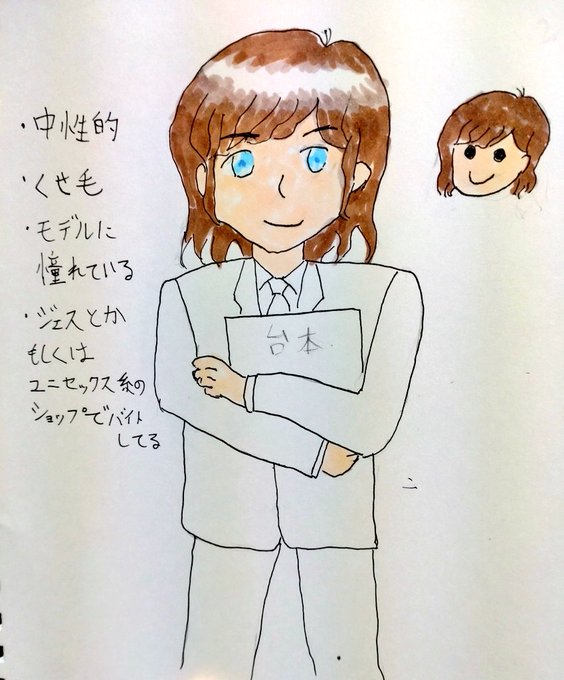 ・中性的
・くせ毛
・モデルに
憧れている
・ジェスとか
もしくは
ユニセックス系の
ショップでバイト
してる
台本